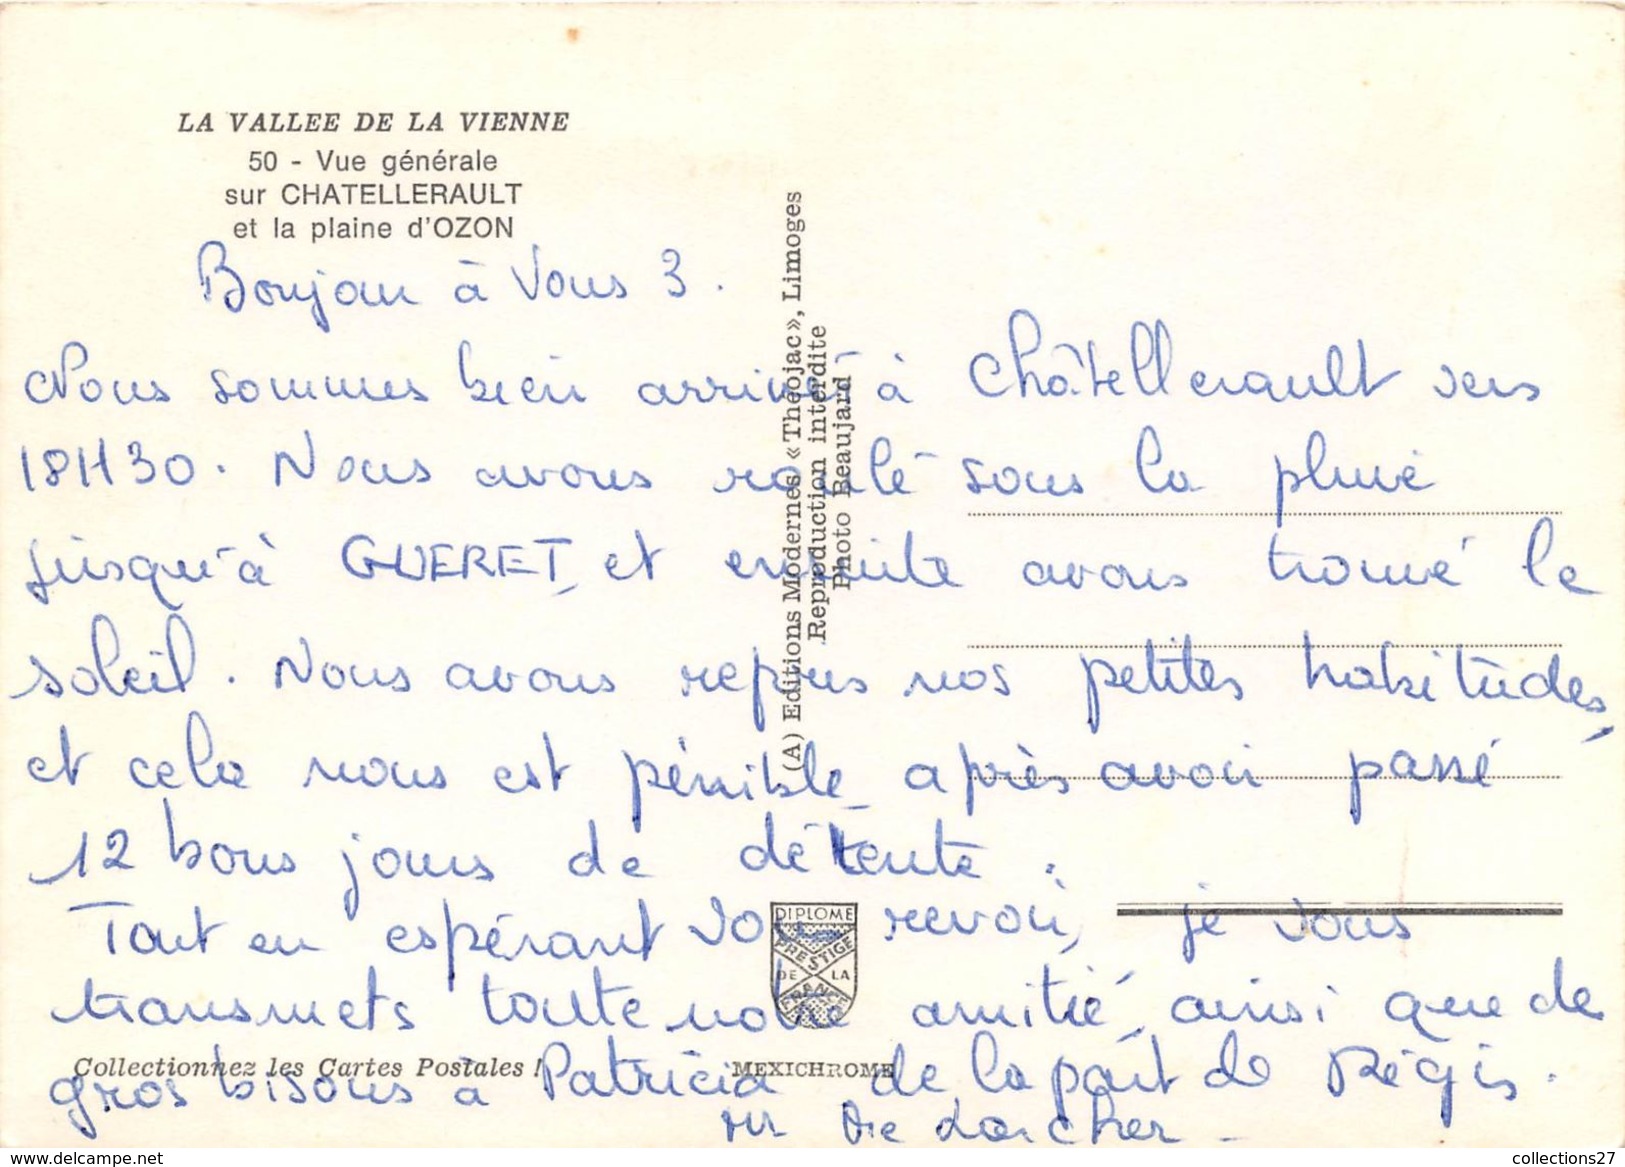 LA VALLEE DE LA VIENNE
50 - Vue générale
sur CHATELLERAULT
et la plaine d'OZON
Bonjour à Vous 3.
Nous sommes bien arrivé à Châtellerault vers
18H30. Nous avons roulé sous la pluie
jusqu'à GUERET, et ensuite avons trouvé le
soleil. Nous avons repris nos petites habitudes,
et cela nous est pénible après avoir passé
12 bons jours de détente.
Tout en espérant vous revoir, je vous
transmets toute notre amitié, ainsi que de
gros bisous à Patricia de la part de Régis.
Mr Larcher
(A) Editions Modernes « Théojac », Limoges
Reproduction interdite
Photo Beaujard
DIPLOME
PRESTIGE
DE LA
FRANCE
Collectionnez les Cartes Postales !
MEXICHROME
collections27